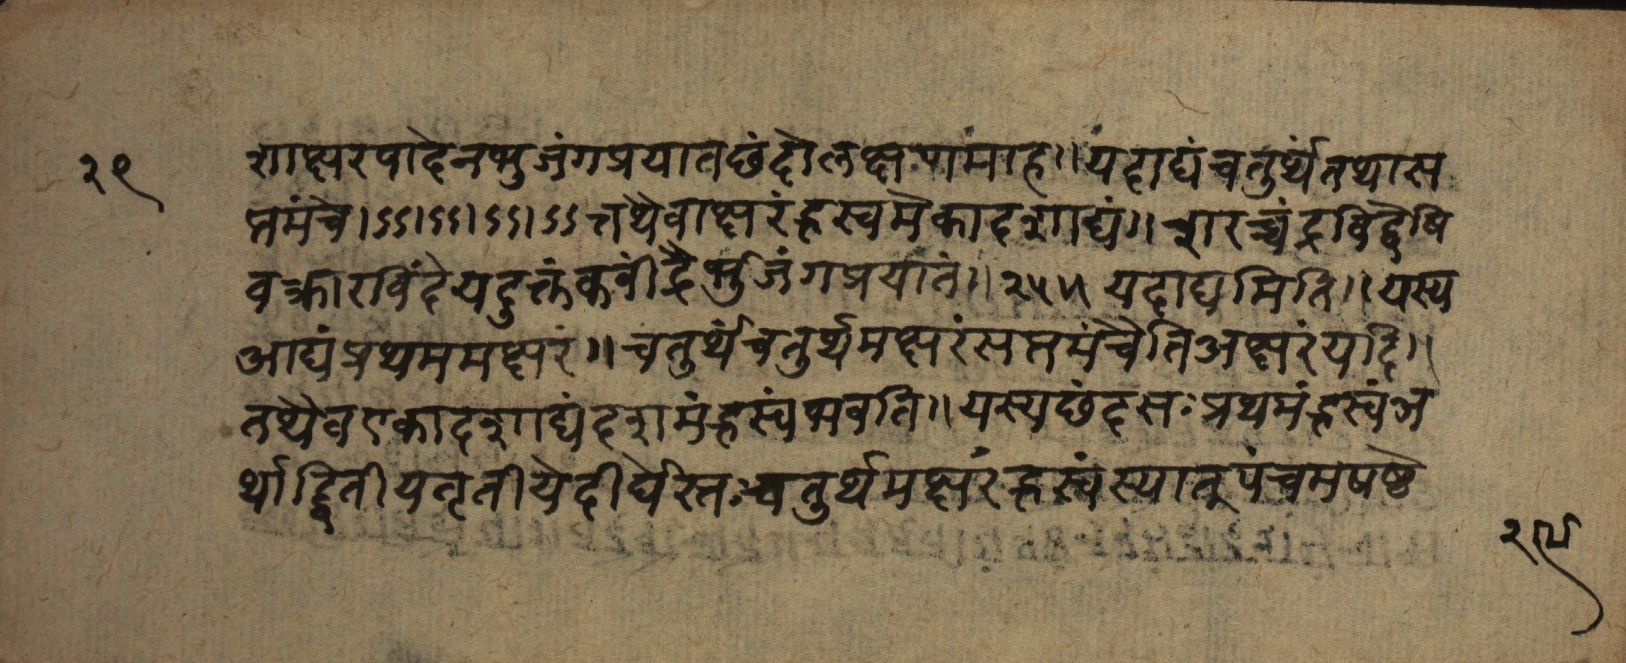 २९
शाक्षरपादेनभुजंगप्रयातछंदोलक्षणंमाह॥यंदाद्यंचतुर्थंतथास
प्तमंचे।ऽऽ।ऽऽ।ऽऽ।ऽऽत्तथैवाक्षरंह्रस्वमेकादशाद्यं॥शरच्चंद्रविद्वेषि
वक्त्रारविंदेयदुक्तंकवींद्रैर्भुजंगप्रयातं॥२५५यदाद्यमिति॥यस्य
आद्यंप्रथममक्षरं॥चतुर्थंचतुर्थमक्षरंसप्तमंचेतिअक्षरंयदि॥
तथैवएकादशाद्यंदशमंह्रस्वंभवति॥यस्यछंदसःप्रथमंह्रस्वंअ
र्थाद्द्वितीयतृतीयेदीर्घेस्तःचतुर्थमक्षरंह्रस्वंस्यात्पंचमषष्ठे